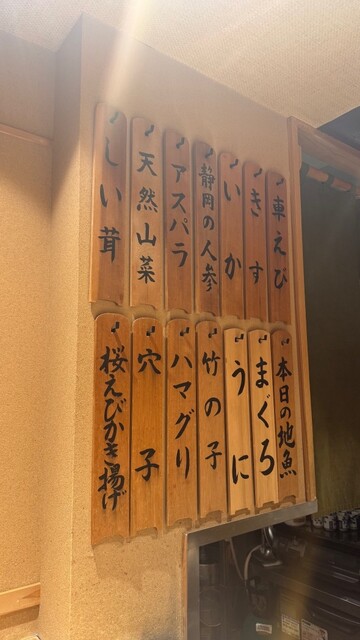 車えび
きす
いか
静岡の人参
アスパラ
天然山菜
しい茸
本日の地魚
まぐろ
うに
竹の子
ハマグリ
穴子
桜えびかき揚げ